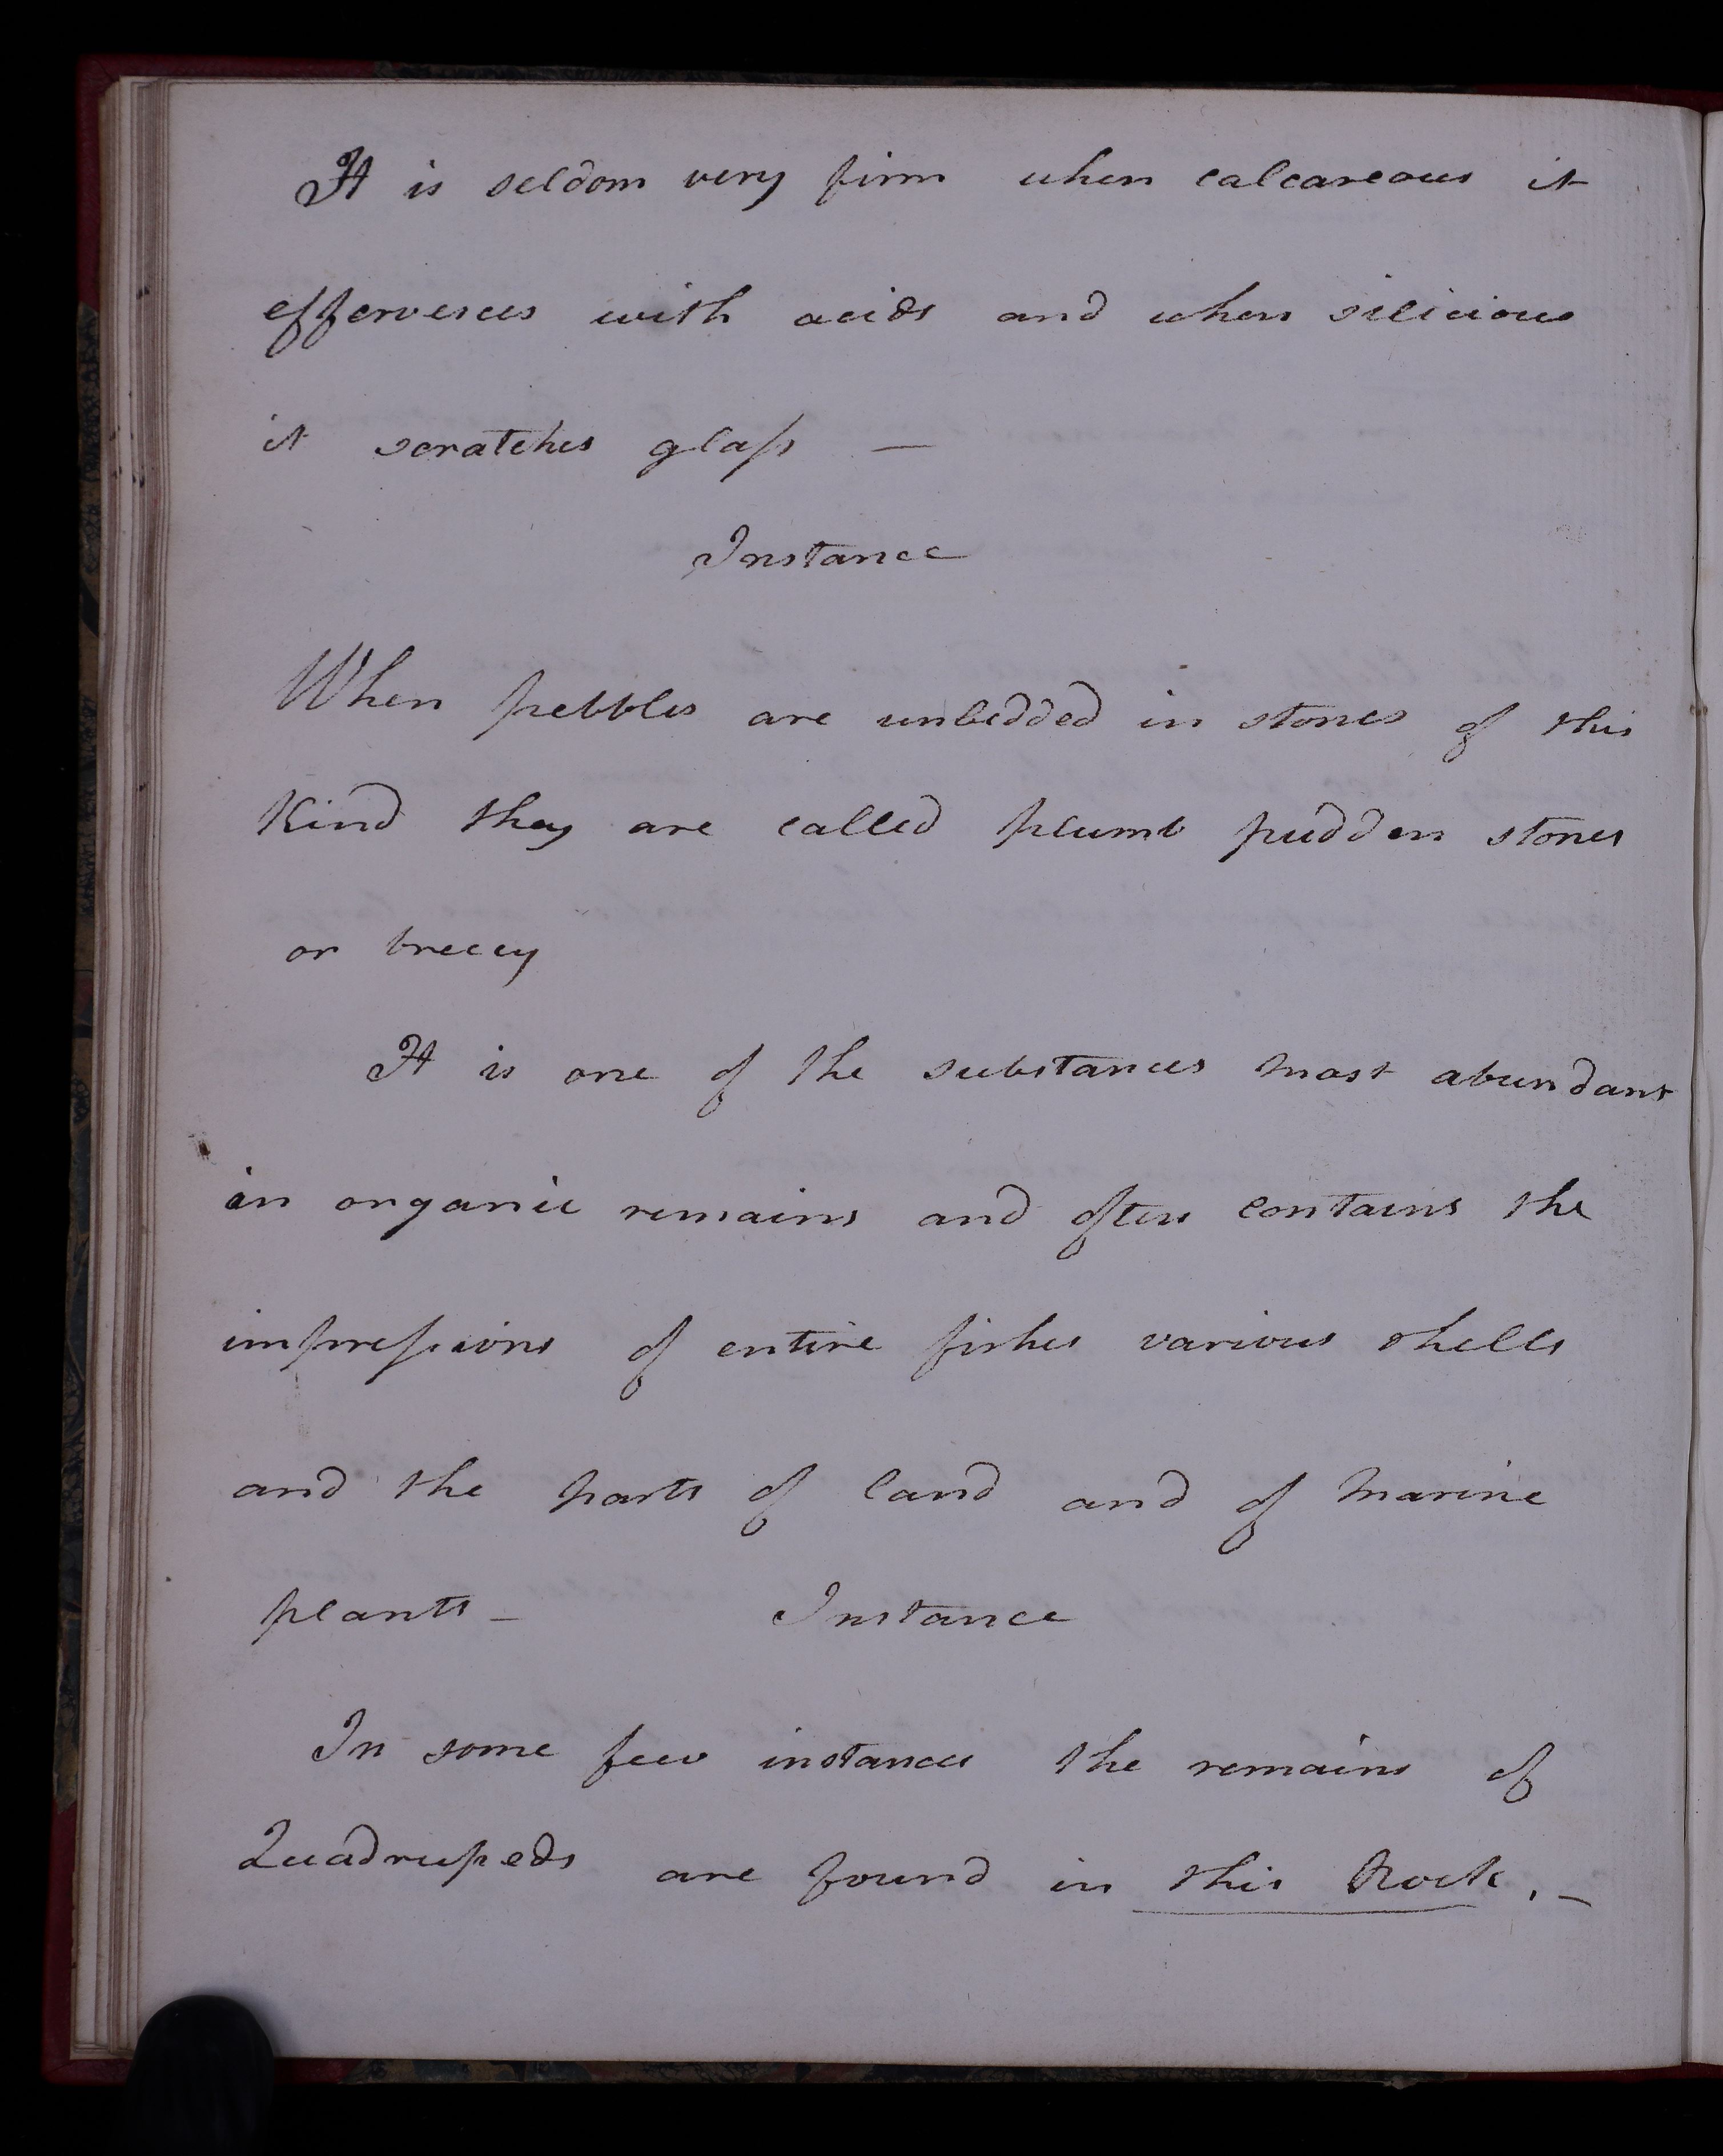 It is seldom very firm when calcareous it
effervesces with acids and when silicious
it scratches glass —
Instance
When pebbles are imbedded in stones of this
Kind they are called plumb pudden stones
or breccy
It is one of the substances most abundant
in organic remains and often contains the
impressions of entire fishes various shells
and the parts of land and of marine
plants — Instance
In some few instances the remains of
Quadrupeds are found in this Rock. —